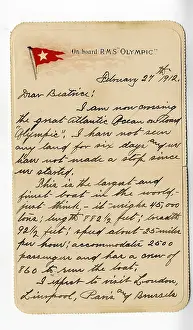 On board R.M.S. "OLYMPIC"
February 27th 1912.
Dear Beatrice;
I am now crossing
the great Atlantic Ocean on board
"Olympic". I have not seen
any land for six days and we
have not made a stop since
we started.
This is the largest and
finest boat in the world -
just think, - it weighs 45,000
tons; length 882½ feet; breadth
92½ feet; speed about 25 miles
per hour; accommodate 2500
passengers and has a crew of
860 to run the boat,
I expect to visit London,
Liverpool, Paris and Brussels